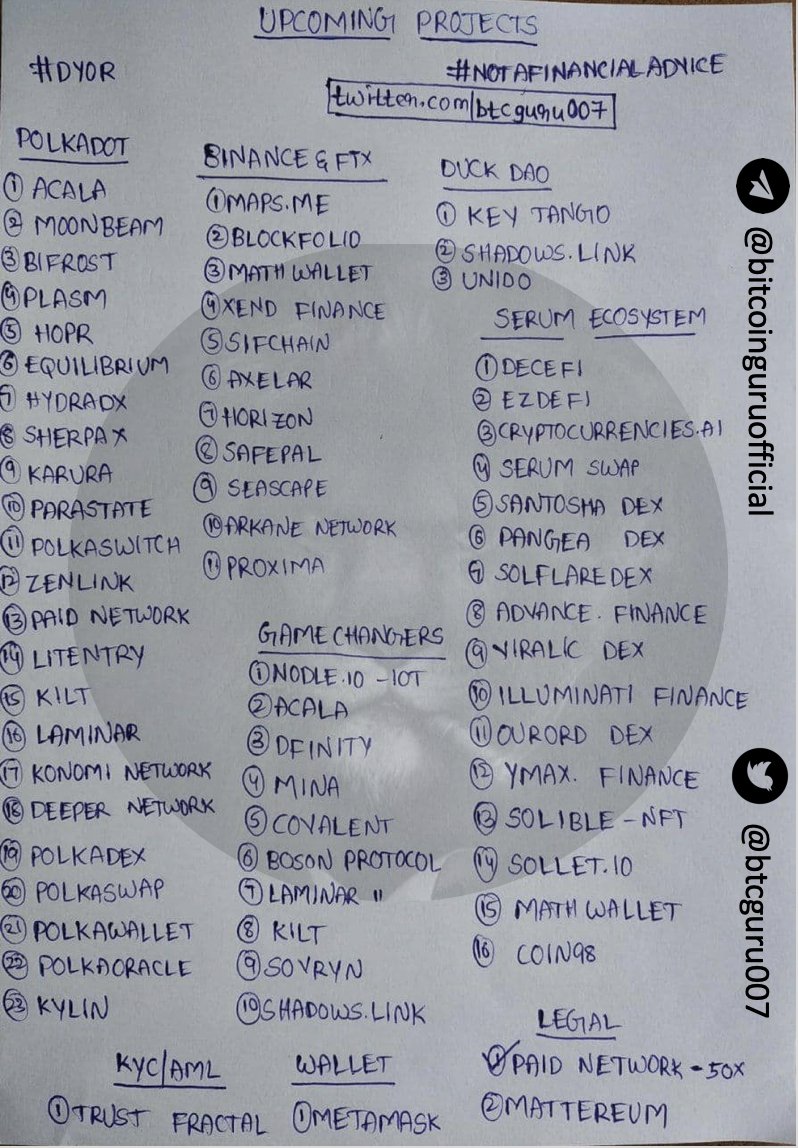 UPCOMING PROJECTS
#DYOR
#NOTAFINANCIALADVICE
twitter.com/btcguru007
POLKADOT
① ACALA
② MOONBEAM
③ BIFROST
④ PLASM
⑤ HOPR
⑥ EQUILIBRIUM
⑦ HYDRADX
⑧ SHERPAX
⑨ KARURA
⑩ PARASTATE
⑪ POLKASWITCH
⑫ ZENLINK
⑬ PAID NETWORK
⑭ LITENTRY
⑮ KILT
⑯ LAMINAR
⑰ KONOMI NETWORK
⑱ DEEPER NETWORK
⑲ POLKADEX
⑳ POLKASWAP
㉑ POLKAWALLET
㉒ POLKAORACLE
㉓ KYLIN
BINANCE & FTX
① MAPS.ME
② BLOCKFOLIO
③ MATH WALLET
④ XEND FINANCE
⑤ SIFCHAIN
⑥ AXELAR
⑦ HORIZON
⑧ SAFEPAL
⑨ SEASCAPE
⑩ ARKANE NETWORK
⑪ PROXIMA
GAME CHANGERS
① NODLE.IO - IOT
② ACALA
③ DFINITY
④ MINA
⑤ COVALENT
⑥ BOSON PROTOCOL
⑦ LAMINAR "
⑧ KILT
⑨ SOVRYN
⑩ SHADOWS.LINK
DUCK DAO
① KEY TANGO
② SHADOWS.LINK
③ UNIDO
SERUM ECOSYSTEM
① DECEFI
② EZDEFI
③ CRYPTOCURRENCIES.AI
④ SERUM SWAP
⑤ SANTOSHA DEX
⑥ PANGEA DEX
⑦ SOLFLARE DEX
⑧ ADVANCE. FINANCE
⑨ VIRALIC DEX
⑩ ILLUMINATI FINANCE
⑪ OURORD DEX
⑫ YMAX. FINANCE
⑬ SOLIBLE - NFT
⑭ SOLLET.IO
⑮ MATH WALLET
⑯ COIN98
KYC/AML
① TRUST FRACTAL
WALLET
① METAMASK
LEGAL
① PAID NETWORK - 50X
② MATTEREUM
@bitcoinguruofficial
@btcguru007